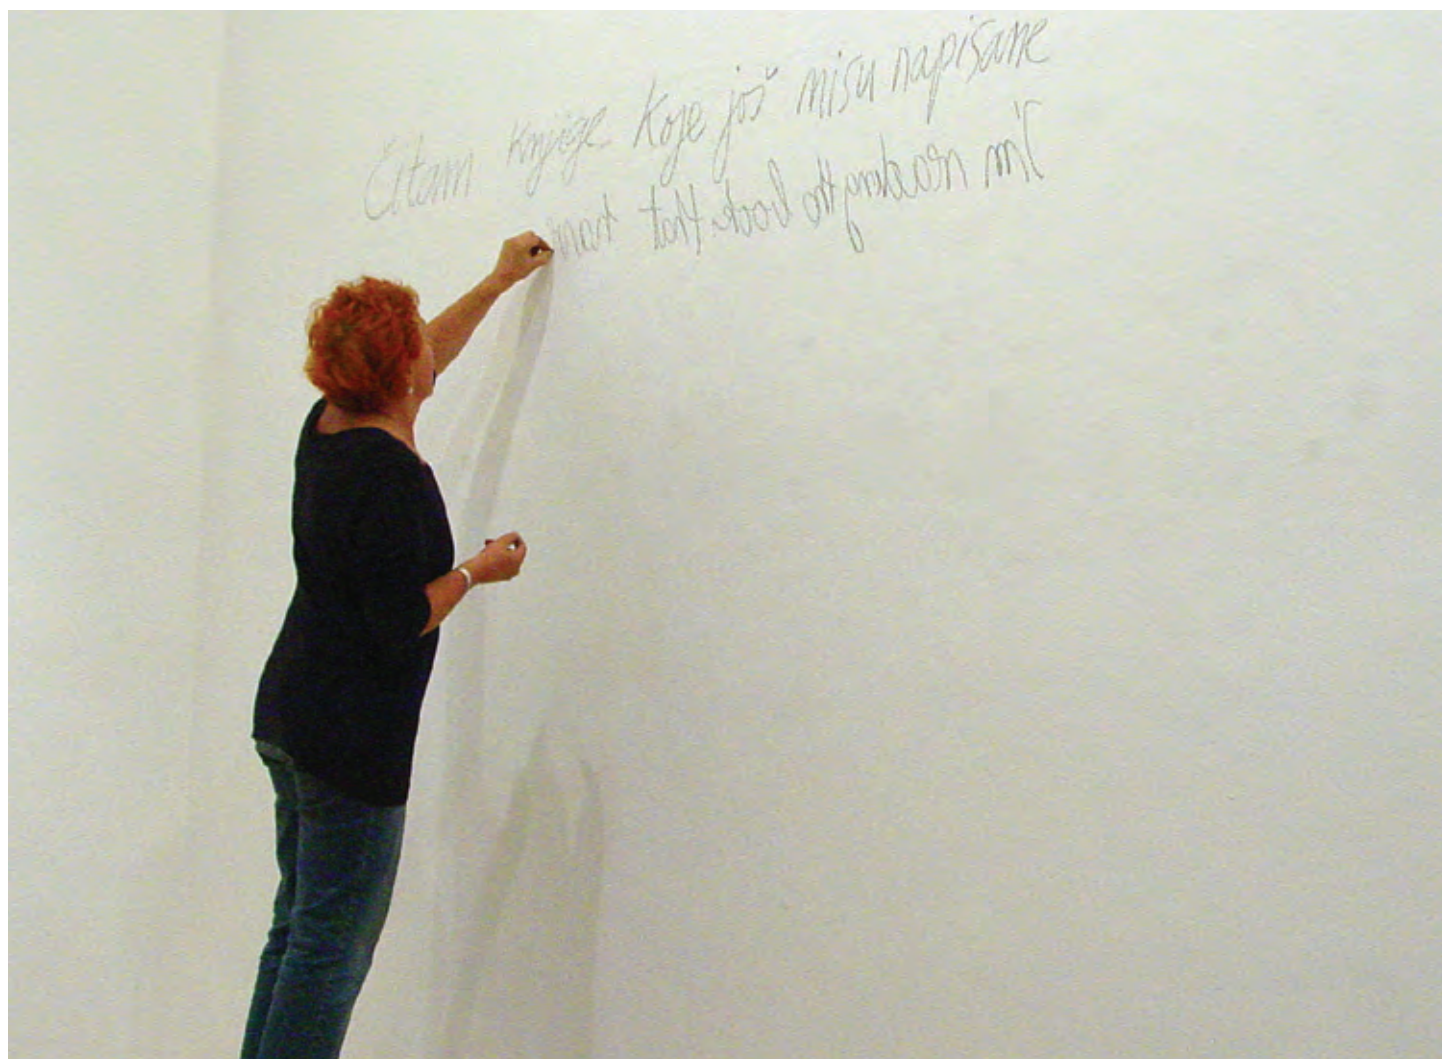 Čitam knjige koje još nisu napisane
I'm reading the books that haven